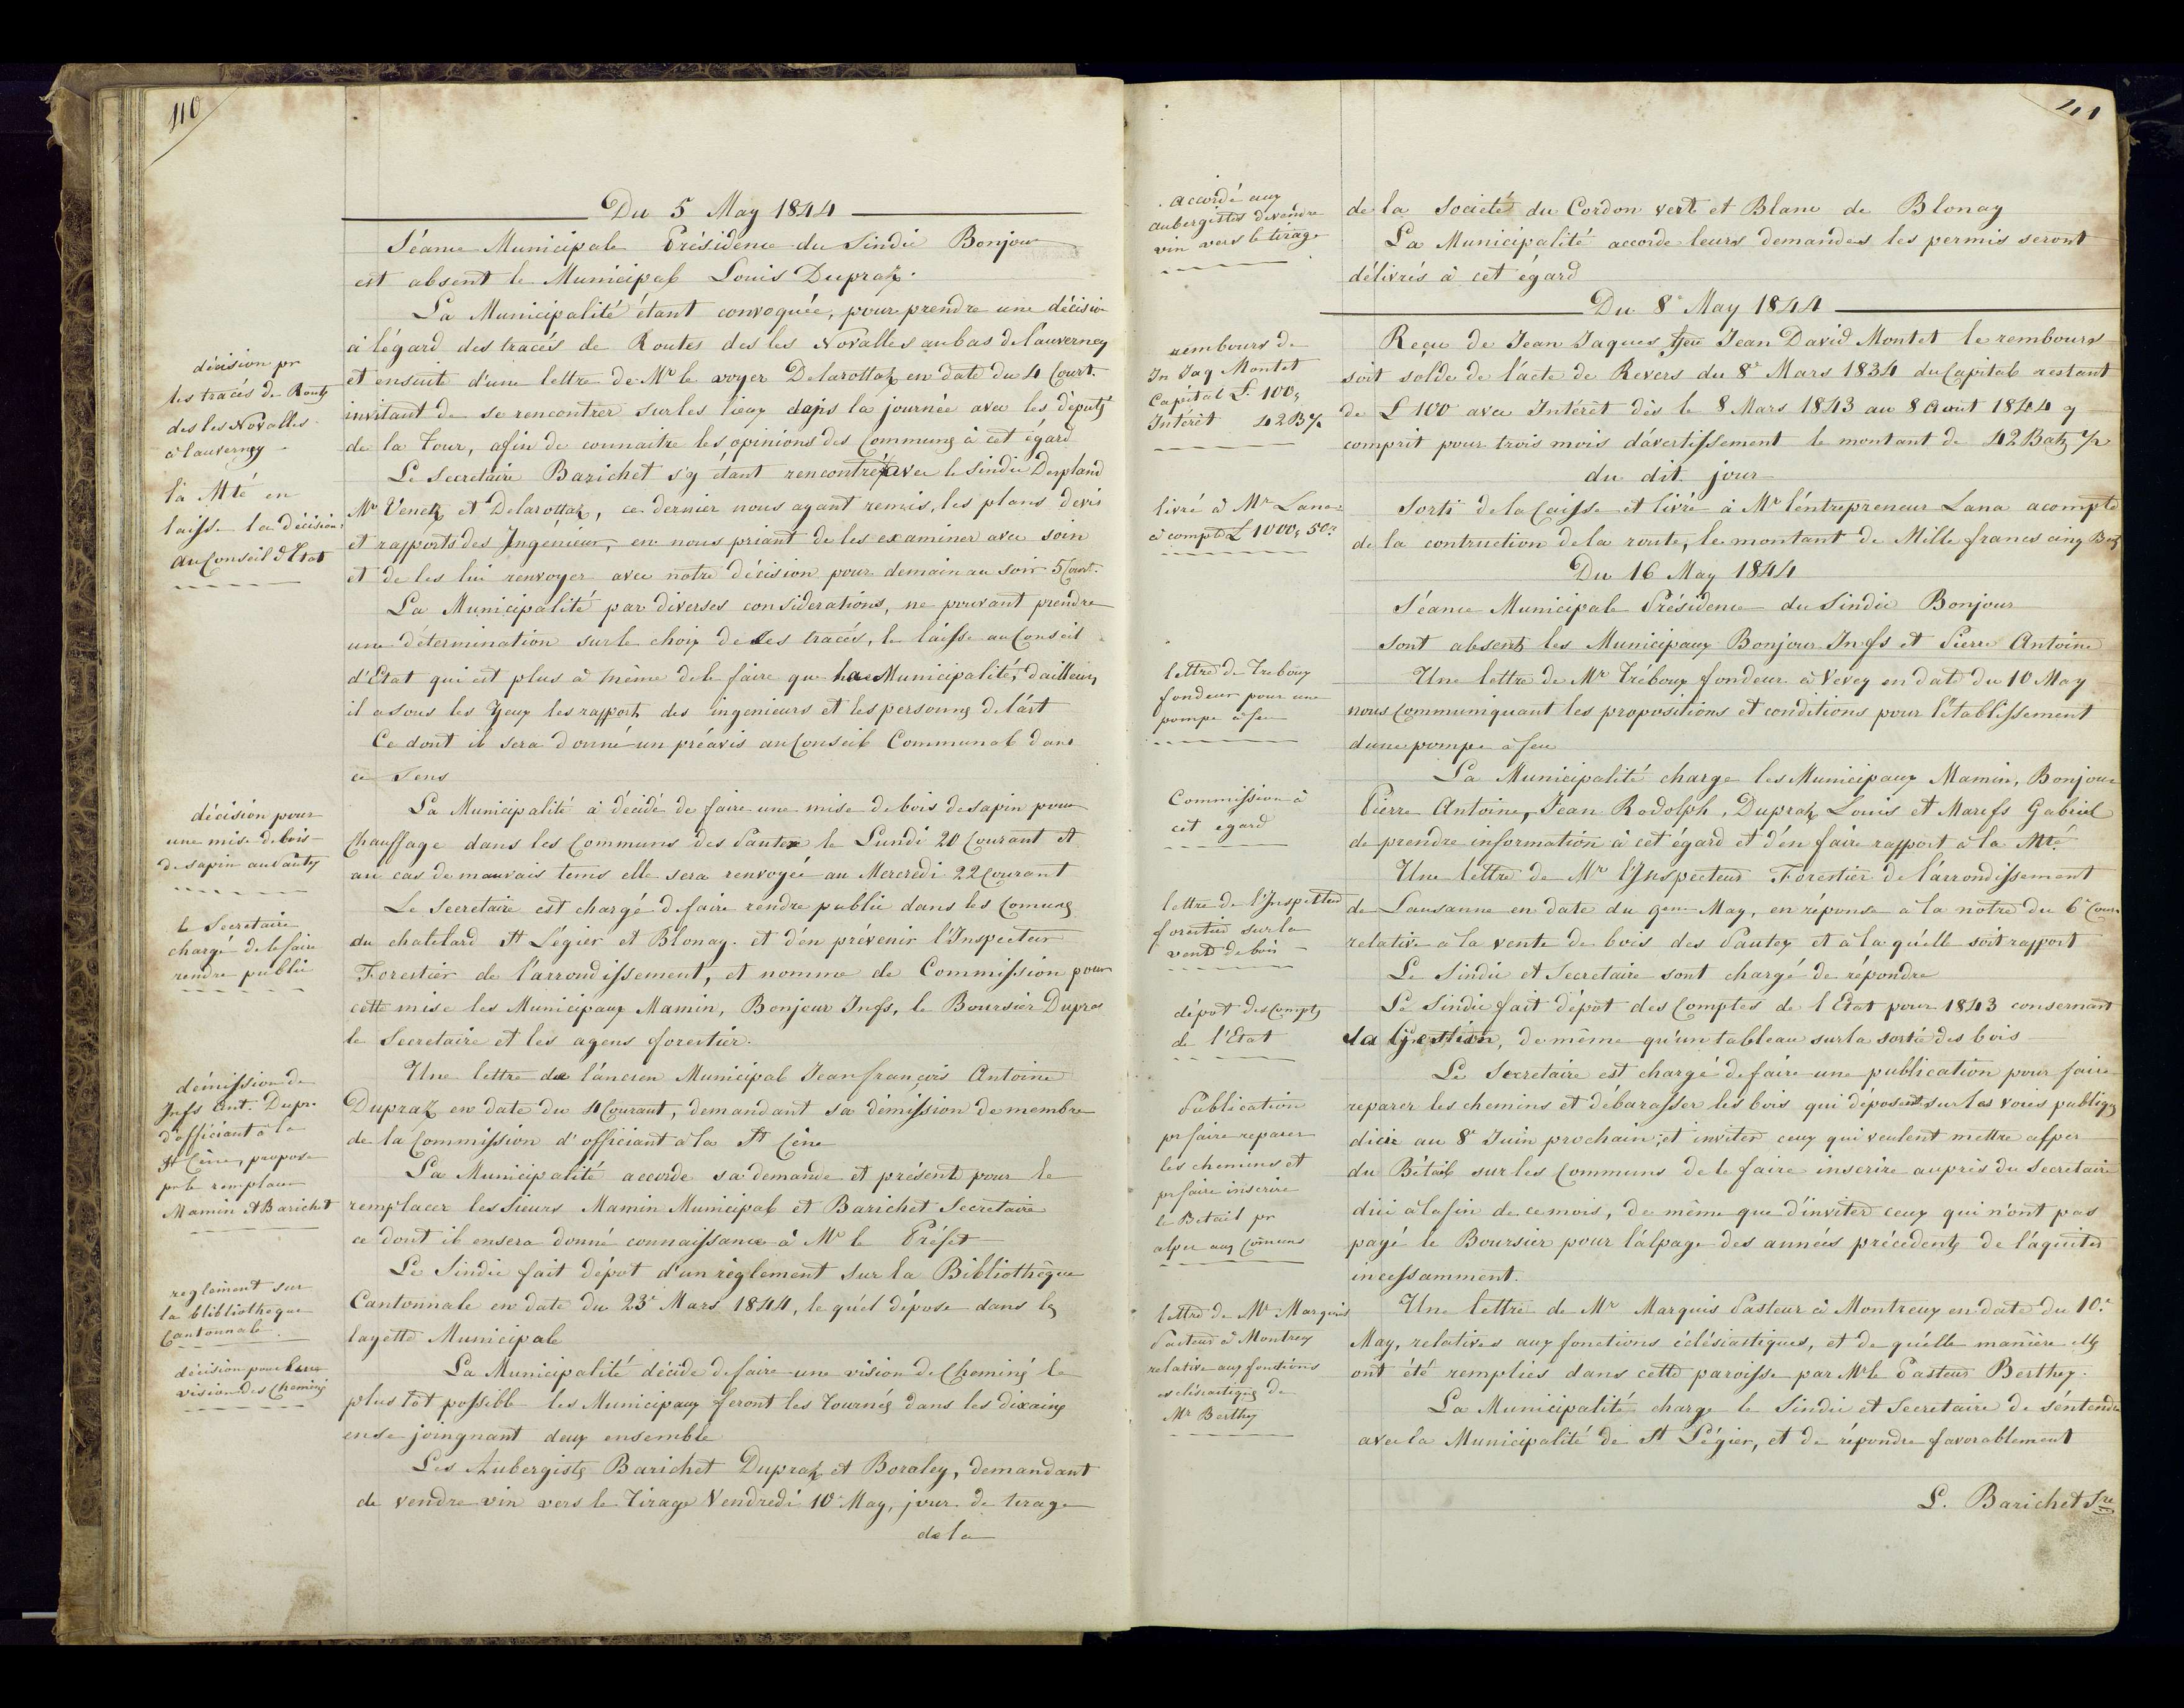 110
Du 5 May 1844
Séance Municipale Présidence du Sindic Bonjour
est absent le Municipal Louis Dupraz.
La Municipalité étant convoquée, pour prendre une décision
à légard des tracés de Routes des les Novalles au bas de l'auverney
et ensuite d'une lettre de Mr le voyer Delarottaz en date du 4 Court.
invitant de se rencontrer sur les lieux dans la journée avec les députés
de la Tour, afin de connaitre les opinions des Communs à cet égard
Le Secretaire Barichet s'y étant rencontré avec le Sindic Depland
Mr Venetz et Delarottaz, ce dernier nous ayant remis, les plans devis
et rapports des Ingénieur, en nous priant de les examiner avec soin
et de les lui renvoyer avec notre décision pour demain au soir 5 Court.
La Municipalité par diverses considerations, ne pouvant prendre
une détermination sur le choix de ces tracés, le laisse au Conseil
d'Etat qui est plus à même de le faire que la Municipalité, d'ailleurs
il a sous les yeux les rapports des ingenieurs et les personnes de l'art
Ce dont il sera donné un préavis au Conseil Communal dans
ce sens
La Municipalité à décidé de faire une mise de bois de sapin pour
Chauffage dans les Communs des Pautex le Lundi 20 Courant et
au cas de mauvais tems elle sera renvoyée au Mercredi 22 Courant
Le Secretaire est chargé de faire rendre public dans les Comunes
du chatelard St Légier et Blonay. et d'en prévenir l'Inspecteur
Forestier de l'arrondissement, et nomme de Commission pour
cette mise les Municipaux Mamin, Bonjour Jnfs, le Boursier Dupraz
le Secretaire et les agens forestier.
Une lettre de l'ancien Municipal Jean françois Antoine
Dupraz en date du 4 Courant, demandant sa démission de membre
de la Commission d'officiant à la St Cène
La Municipalité accorde sa demande et présent pour le
remplacer les Sieurs Mamin Municipal et Barichet Secretaire
ce dont il en sera donné connaissance à Mr le Préfet
Le Sindic fait dépot d'un règlement sur la Bibliothèque
Cantonnale en date du 23e Mars 1844, le qu'el dépose dans la
layette Municipale
La Municipalité décide de faire une vision de Chemins le
plus tôt possible les Municipaux feront les Tournés dans les dixains
en se joingnant deux ensemble
Les Aubergists Barichet Dupraz et Boraley, demandant
de vendre vin vers le Tirage Vendredi 10e May, jour de tirage
de la
décision pr
les tracés de Routs
des les Novalles
à lauverney
la Mté en
laisse la décision
au Conseil d'Etat
décision pour
une mise de bois
de sapin au Pautex
le Secretaire
chargé de le faire
rendre public
démission de
Jnfs Ant. Dupr.
d'officiant à la
St Cène, propose
pr le remplacer
Mamin et Barichet
reglement sur
la blibliotheque
Cantonnale.
décision pour une
vision des Chemins
111
de la Societé du Cordon vert et Blanc de Blonay
La Municipalité accorde leurs demandes les permis seront
délivrés à cet égard
Du 8e May 1844
Reçu de Jean Jaques feu Jean David Montet le rembours
soit solde de l'acte de Revers du 8e Mars 1834 du Capital restant
de L 100 avec Intérêt dès le 8 Mars 1843 au 8 Aout 1844 y
comprit pour trois mois d'avertissement le montant de 42 Batz ½
du dit jour
Sorti de la Caisse et livré à Mr l'entrepreneur Lana acompte
de la contruction de la route, le montant de Mille francs cinq Btz
Du 16 May 1844
Séance Municipale Présidence du Sindic Bonjour
sont absents les Municipaux Bonjour Jnfs et Pierre Antoine
Une lettre de Mr Tréboux fondeur à Vevey en date du 10 May
nous communiquant les propositions et conditions pour l'établissement
d'une pompe à feu
La Municipalité charge les Municipaux Mamin, Bonjour
Pierre Antoine, Jean Rodolph, Dupraz Louis et Marefs Gabriel
de prendre information à cet égard et d'en faire rapport à la Mté.
Une lettre de Mr l'Inspecteur Forestier de l'arrondissement
de Lausanne en date du 9em May, en réponse à la notre du 6e Cour
relative à la vente de bois des Pautex et à la qu'elle soit rapport
Le Sindic et Secretaire sont chargé de répondre
Le Sindic fait dépot des Comptes de l'Etat pour 1843 consernant
la Gestion, de même qu'un tableau sur la sortie des bois
Le Secretaire est chargé de faire une publication pour faire
reparer les chemins et débarasser les bois qui déposent sur les voies publiqs
dicie au 8e Juin prochain, et inviter ceux qui veulent mettre alper
du Bétail sur les Communs de le faire inscrire auprès du Secretaire
dici à la fin de ce mois, de même que d'inviter ceux qui n'ont pas
payé le Boursier pour l'alpage des années précédents de l'aquiter
incessamment.
Une lettre de Mr Marquis Pasteur à Montreux en date du 10e
May, relatives aux fonctions éclésiastiques, et de qu'elle manière ells
ont été remplies dans cette paroisse par Mr le Pasteur Berthey.
La Municipalité charge le Sindic et Secretaire de s'entendre
avec la Municipalité de St Légier, et de répondre favorablement
L. Barichet Sre
accordé aux
aubergistes de vendre
vin vers le tirage
rembours de
Jn Jaq Montet
Capital L. 100,
Intérêt 42 B ½
livré à Mr Lana
à compte L 1000, 50r
lettre de Treboux
fondeur pour une
pompe à feu
Commission à
cet egard
lettre de l'Inspecteur
forestier sur la
vente de bois
dépot des Compts
de l'Etat
Publication
pr faire reparer
les chemins et
pr faire inscrire
le Betail pr
alper aux Comuns
lettre de Mr Marquis
Pasteur à Montrey
relative aux fontions
esclésiastiqes de
Mr Berthey